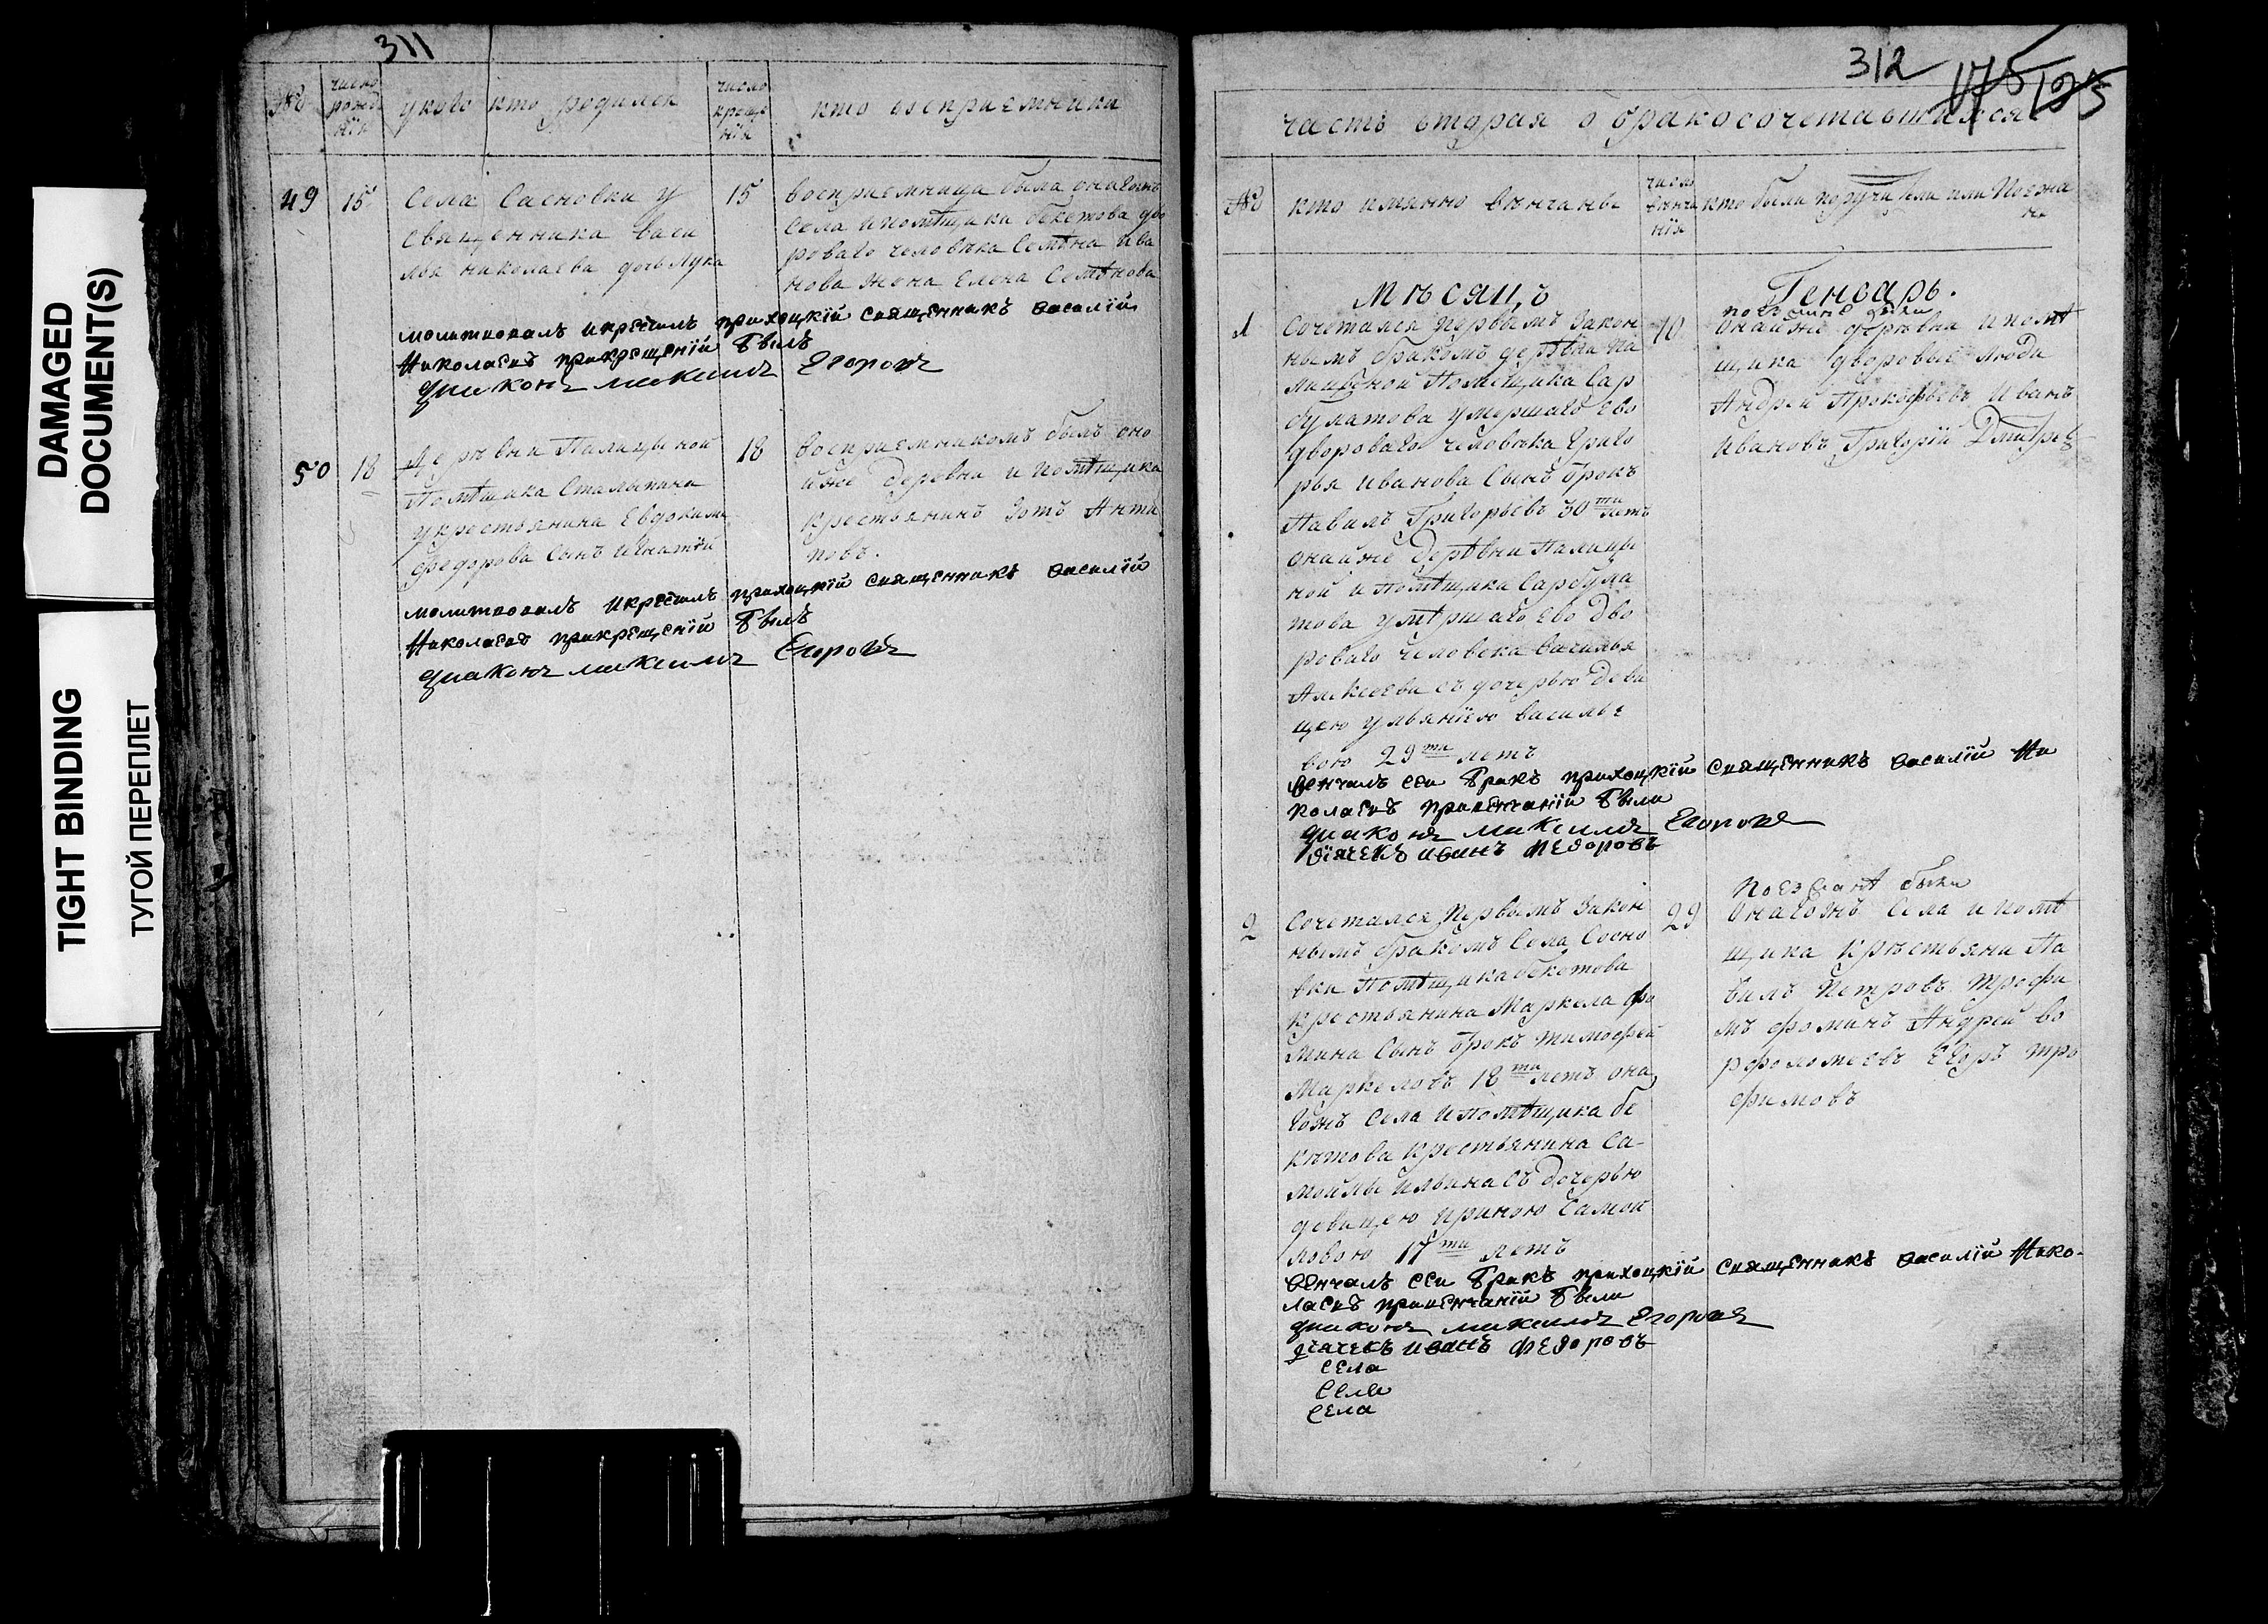 DAMAGED
DOCUMENT(S)
TIGHT BINDING
ТУГОЙ ПЕРЕПЛЕТ
311
№
число рожде нїя
у ково кто родился
число креще нїя
кто восприемники
49
15
Села Сасновки у
священника Васи
лья Николаева дочь Лука
15
восприемница была онагожъ
села и помѣщика бекетова дво
роваго человѣка Семѣна Ива
нова жена Елена Семѣнова
молитвовалъ и крестилъ прихоцкїй священникъ василїй
Николаевъ при крещенїй былъ
диаконъ максимъ Егоровъ
50
18
Деревни Палицыной
Помѣщика Столыпина
у крестьянина Евдокима
федорова сынъ Игнатей
18
восприемникомъ былъ оно
йже деревни и помѣщика
крестьянинъ Зотъ Анти
повъ.
молитвовалъ и крестилъ прихоцкїй священникъ василїй
Николаевъ при крещенїй былъ
диаконъ максимъ Егоровъ
312
175
195
часть вторая о бракосочетавшихся
№
кто имянно венчаны
число венча нїя
кто были поручители или Поезжа не
Мѣсяцъ Генварь.
1
Сочетался Первымъ Закон
нымъ бракомъ деревни Па
лицыной Помещика Сар
булатова умершаго ево
двороваго человѣка Григо
рья Иванова Сынъ Отрокъ
Павилъ Григорьевъ 30 ти летъ
онайже деревни Палицы
ной и помѣщика Сарбула
това умершаго ево дво
роваго человека Василья
Алексеева съ дочерью деви
цею ульянїею василье
вою 29 ти летъ
10
поезжане были
Онайже деревни и помѣ
щика дворовые люди
Андрей Прокофьевъ Иванъ
Ивановъ Григорїй Дмитрев
венчалъ сеи бракъ прихоцкїй священникъ василїй Ни
колаевъ при венчанїи были
диаконъ максимъ Егоровъ
дїячекъ иванъ федоровъ
2
Сочетался Первымъ Закон
нымъ бракомъ Села Сосно
вки Помѣщика бекетова
крестьянина Маркела фо
мина Сынъ Отрокъ Тимофей
Маркеловъ 18 ти летъ она
гожъ Села и Помѣщика бе
кетова крестьянина Са
мойлы Ильина съ дочерью
девицею Ириною Самой
ловою 17 ти летъ
29
поезжанѣ были
Онагожъ Села и помѣ
щика крестьяни Па
вилъ Петровъ Трофи
мъ фоминъ Андрей во
рфоломеевъ Егоръ Тро
фимовъ
венчалъ сеи бракъ прихоцкїй священникъ василїй Нико-
лаевъ при венчанїй были
диаконъ максимъ Егоровъ
дьячекъ иванъ федоровъ
села
села
села